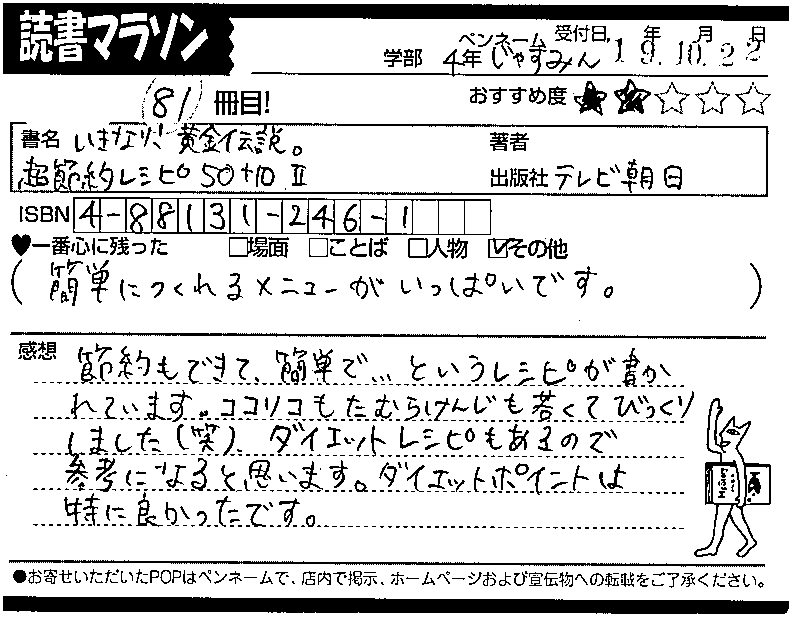 読書マラソン
学部 4年 ペンネーム じゃすみん 受付日 19年10月22日
81 冊目! おすすめ度 ★★☆☆☆
書名 いきなり!黄金伝説。 著者
超節約レシピ50+10 Ⅱ 出版社 テレビ朝日
ISBN 4-88131-246-1
♥一番心に残った □場面 □ことば □人物 ☑その他
(簡単につくれるメニューがいっぱいです。)
感想 節約もできて、簡単で…というレシピが書か
れています。ココリコもたむらけんじも若くてびっくり
しました(笑)、ダイエットレシピもあるので
参考になると思います。ダイエットポイントは
特に良かったです。
●お寄せいただいたPOPはペンネームで、店内で掲示、ホームページおよび宣伝物への転載をご了承ください。